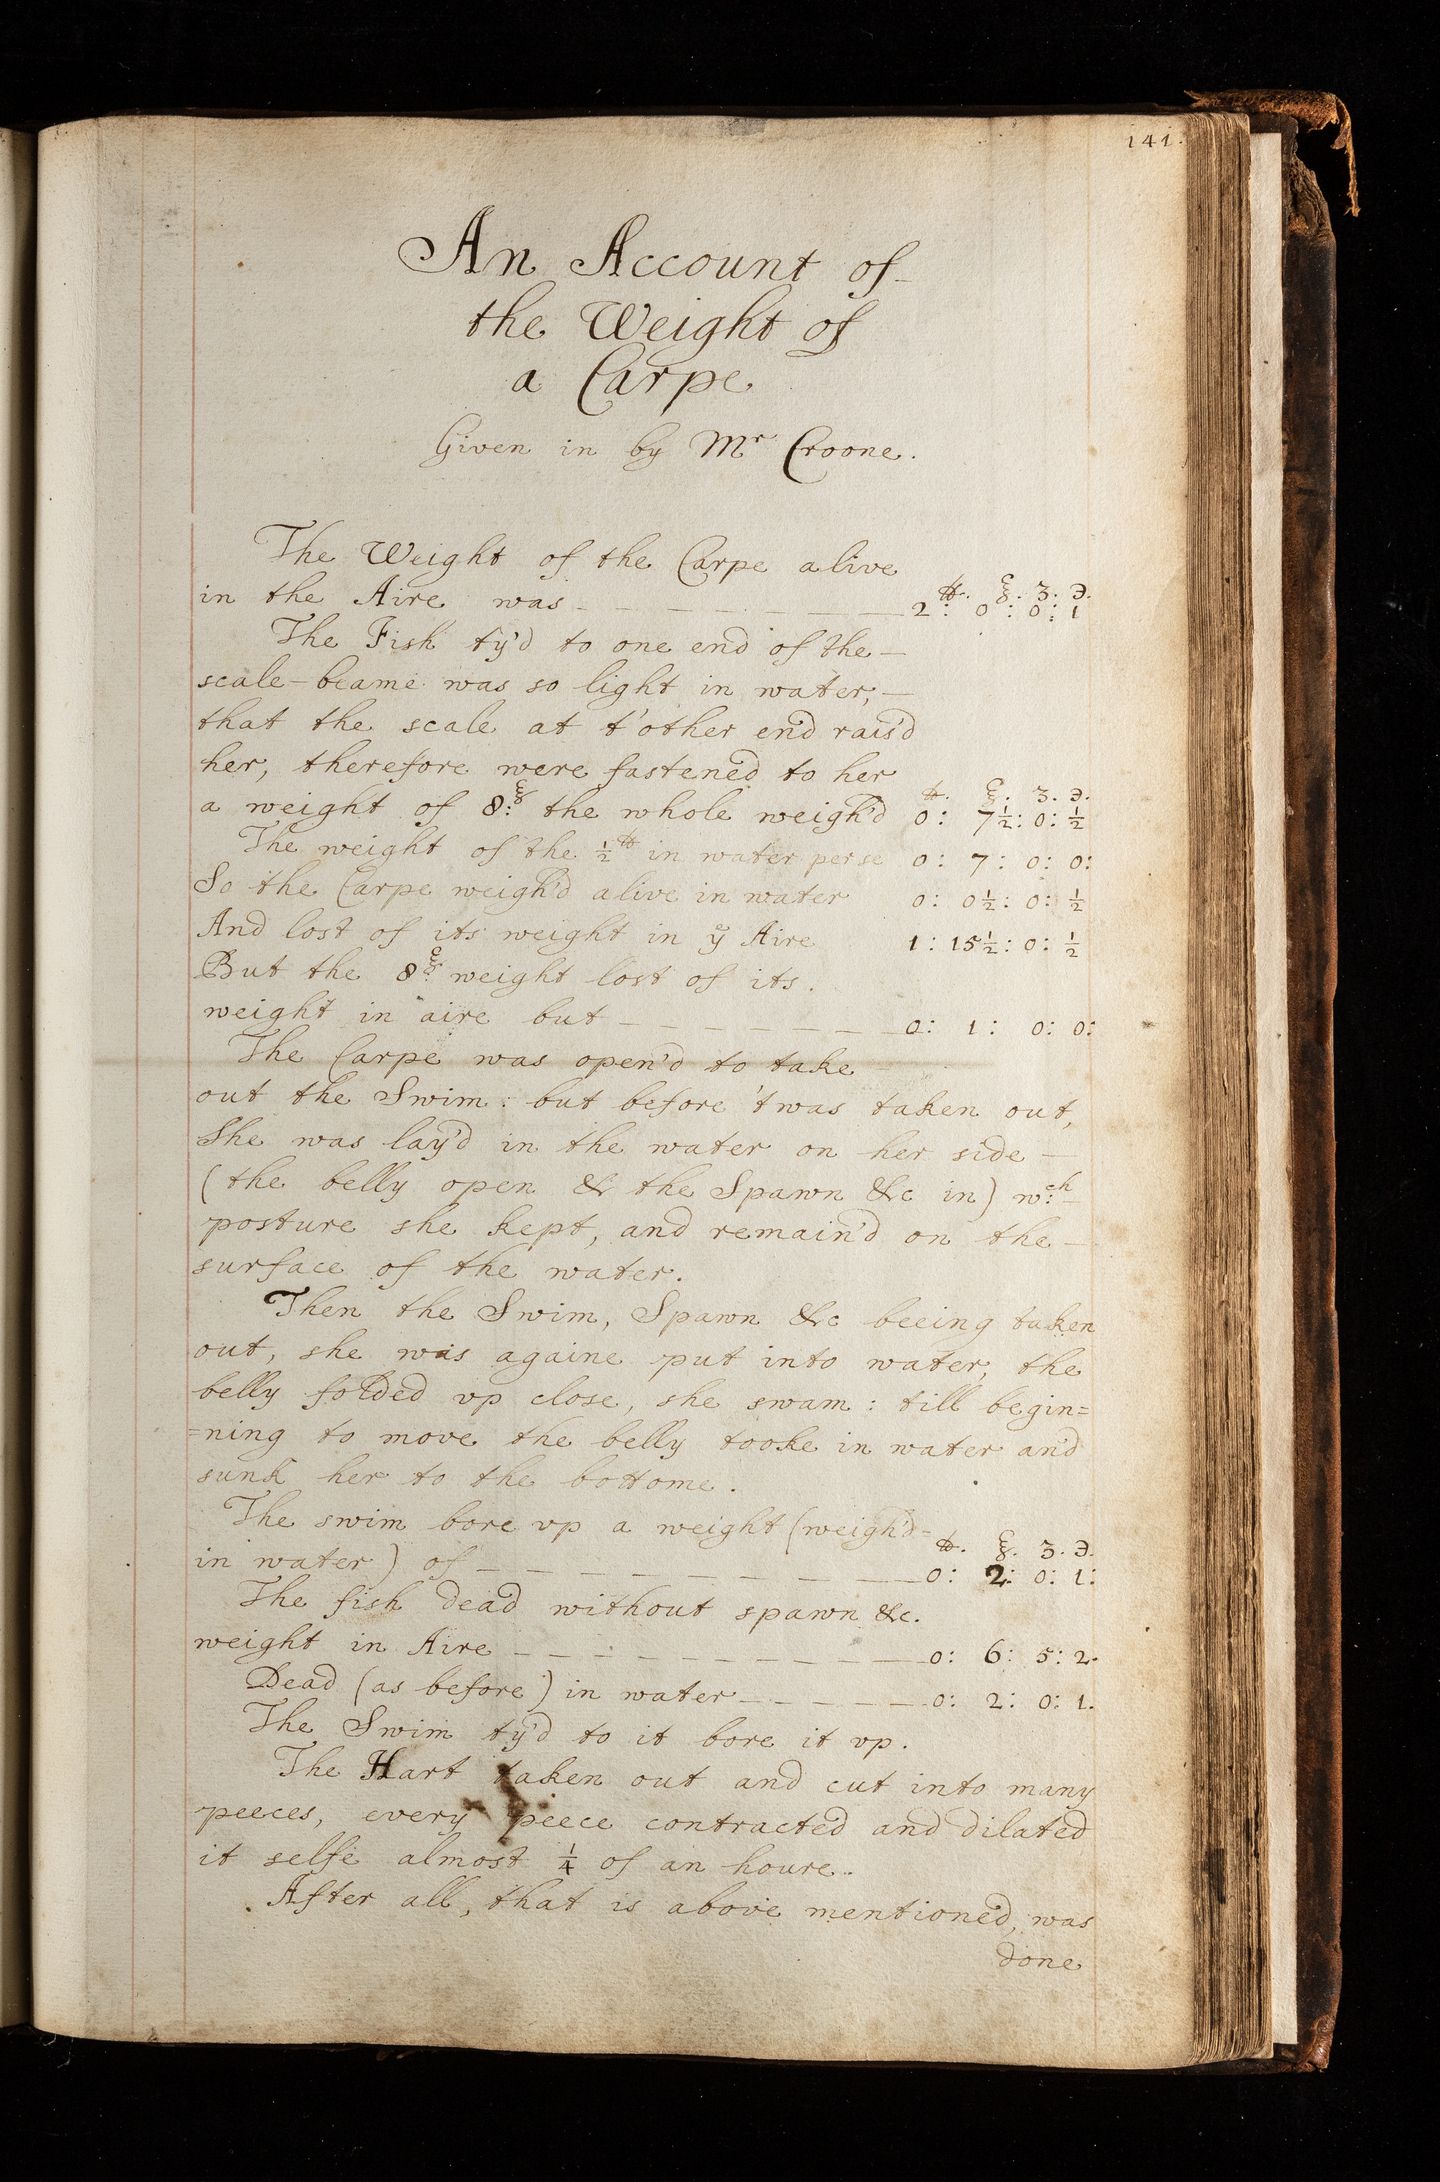 141.
An Account of
the Weight of
a Carpe
Given in by Mr Croone.
The Weight of the Carpe alive
in the Aire was — — — — — — ℔. ℥. ʒ. ℈.
2: 0: 0: 1
The Fish ty'd to one end of the —
scale-beame was so light in water, —
that the scale at t'other end rais'd
her, therefore were fastened to her
℔. ℥. ʒ. ℈.
a weight of 8:℥ the whole weigh'd 0: 7½: 0: ½
The weight of the ½ ℔ in water per se 0: 7: 0: 0:
So the Carpe weigh'd alive in water 0: 0½: 0: ½
And lost of its weight in ye Aire 1: 15½: 0: ½
But the 8℥ weight lost of its.
weight in aire but — — — — — — — 0: 1: 0: 0:
The Carpe was open'd to take —
out the Swim: but before 'twas taken out,
She was lay'd in the water on her side —
(the belly open & the Spawn &c in) wch —
posture she kept, and remain'd on the —
surface of the water.
Then the Swim, Spawn &c beeing taken
out, she was againe put into water, the
belly folded vp close, she swam: till begin=
=ning to move the belly tooke in water and
sunk her to the bottome.
The swim bore vp a weight (weigh'd=
℔. ℥. ʒ. ℈.
in water) of — — — — — — — — — 0: 2: 0: 1:
The fish dead without spawn &c.
weight in Aire — — — — — — — — — 0: 6: 5: 2.
Dead (as before) in water — — — — — 0: 2: 0: 1.
The Swim ty'd to it bore it vp.
The Hart taken out and cut into many
peeces, every peece contracted and dilated
it selfe almost ¼ of an houre.
After all, that is above mentioned, was
done